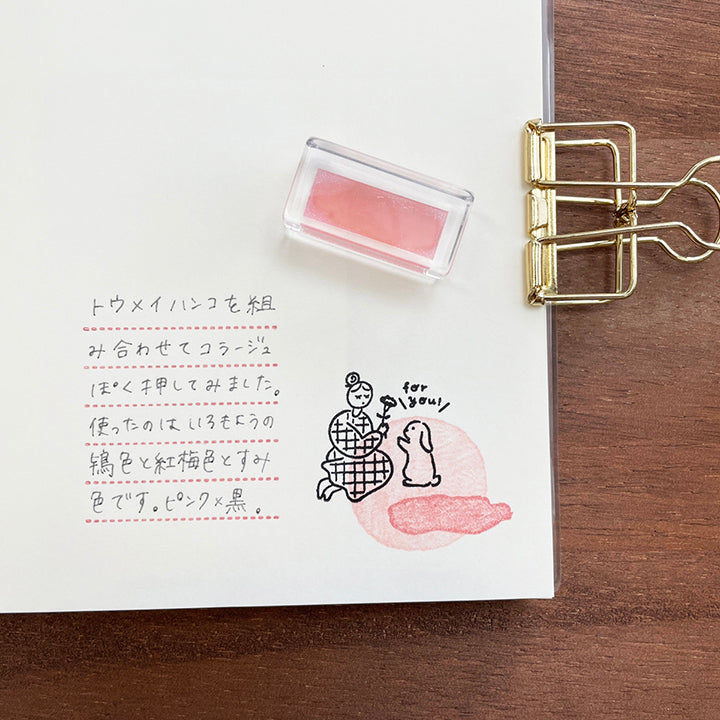 トウメイハンコを組
み合わせてコラージュ
ぽく押してみました。
使ったのはいろもようの
鴇色と紅梅色とすみ
色です。ピンク×黒。
for
you!